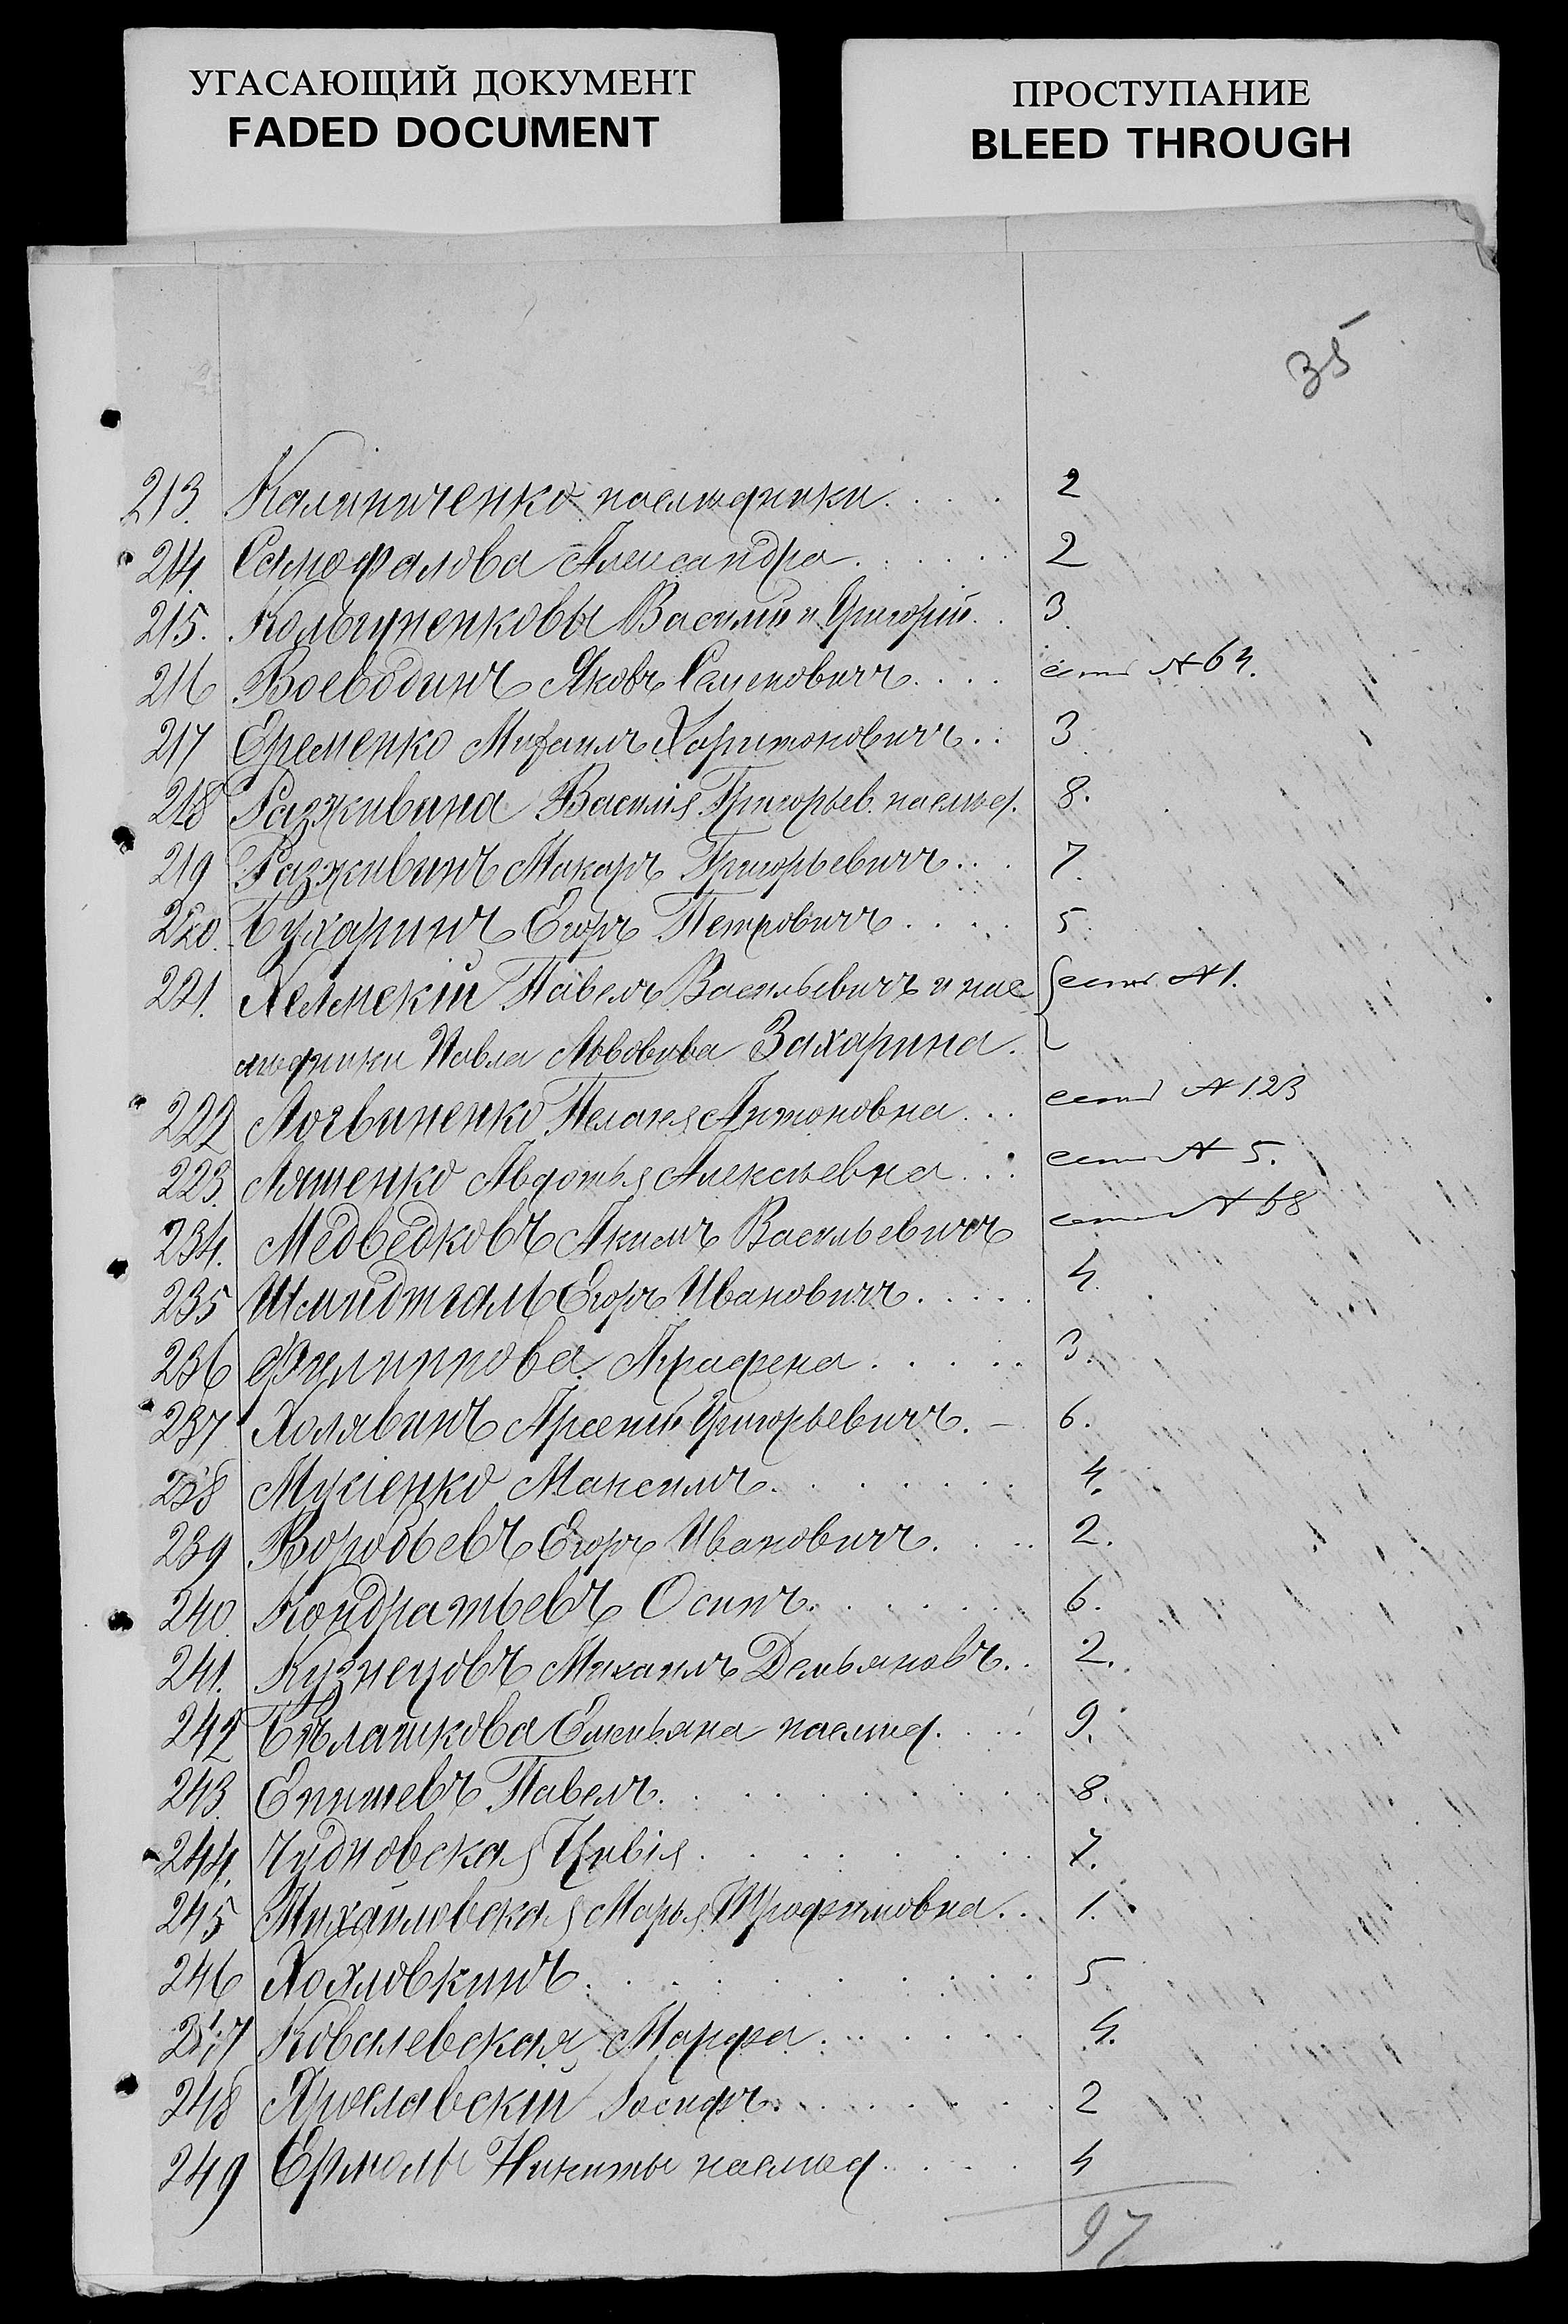 УГАСАЮЩИЙ ДОКУМЕНТ
FADED DOCUMENT
ПРОСТУПАНИЕ
BLEED THROUGH
35
213. Калиниченко наслѣдники.... 2
214. Самофалова Александра...... 2
215. Василій и Григорій.. 3.
216 Воеводинъ Яковъ Семеновичъ.... есть № 64.
217 Еременко Михаилъ Харитоновичъ... 3
218 Разживина Василія Григорьев. наслѣд. 8.
219 Разживинъ Макаръ Григорьевичъ... 7.
220. Бухаринъ Егоръ Петровичъ..... 5
221. Хелмскій Павелъ Васильевичъ и нас есть № 1.
лѣдники Павла Львовича Захарина.
222 Логвиненко Пелагея Антоновна... есть № 123
223. Ляшенко Авдотья Алексѣевна... есть № 5.
234. Медведковъ Акимъ Васильевичъ есть № 68
235 Шмидтгаль Егоръ Ивановичъ..... 4.
236 Филиппова Аграфена..... 3.
237 Холявинъ Арсеній Григорьевичъ. – 6.
238 Мусіенко Максимъ....... 4.
239 Воробьевъ Егоръ Ивановичъ.... 2.
240. Кондратьевъ Осипъ....... 6.
241. Кузнецовъ Михаилъ Демьяновъ.. 2.
242 Бѣлашкова Емельяна наслѣд.... 9.
243. Епишевъ Павелъ......... 8.
244. Чудновская Цивія......... 7.
245 Михайловская Марья Трофимовна.. 1.
246 Хохловкинъ......... 5
247 Ковалевская Марфа...... 4.
248 Ярославскій Іосифъ....... 2
249 Ермолы Никиты наслѣд..... 4
97